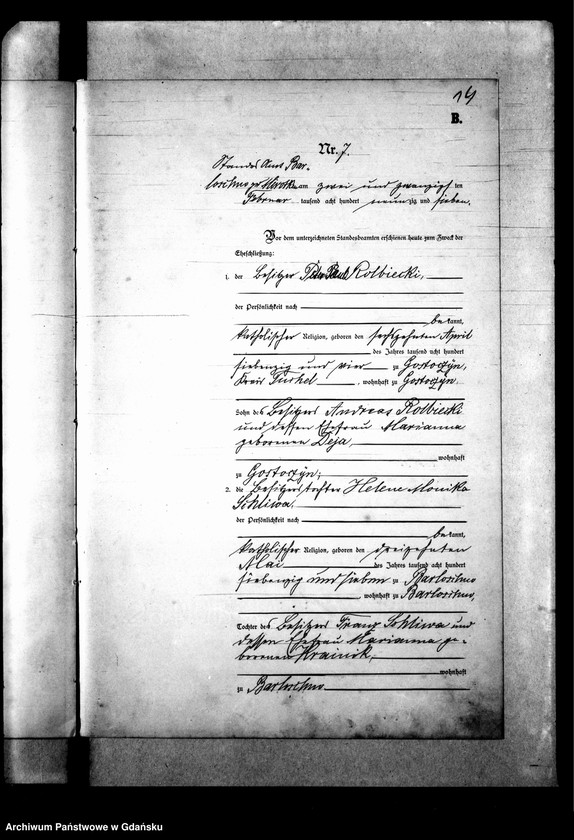 14
B.
Nr. 7.
Standes Amt Bar-
loschno am zwei und zwanzigsten
Februar tausend acht hundert neunzig und sieben.
Vor dem unterzeichneten Standesbeamten erschienen heute zum Zweck der
Eheschließung:
1. der Besitzer Rolbiecki,
der Persönlichkeit nach
bekannt,
katholischer Religion, geboren den sechszehnten April
des Jahres tausend acht hundert
siebenzig und vier zu Gostoczyn,
Kreis Tuchel, wohnhaft zu Gostoczyn.
Sohn des Besitzers Andreas Rolbiecki
und dessen Ehefrau Marianna
geborenen Deja,
wohnhaft
zu Gostoczyn;
2. die Besitzerstochter Helene Monika
Schliwa,
der Persönlichkeit nach
bekannt,
katholischer Religion, geboren den dreizehnten
Mai des Jahres tausend acht hundert
siebenzig und sieben zu Barloschno
, wohnhaft zu Barloschno,
Tochter des Besitzers Franz Schliwa und
dessen Ehefrau Marianna ge-
borenen
wohnhaft
zu Barloschno
Archiwum Państwowe w Gdańsku